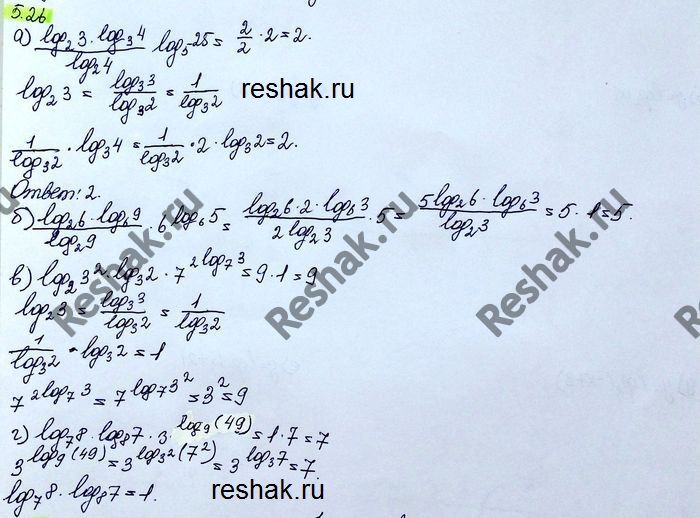 5.26
а) (log₂3·log₃4)/(log₂4) log₅25 = 2/2·2=2.
log₂3 = log₃3/log₃2 = 1/log₃2 reshak.ru
1/log₃2·log₃4 = 1/log₃2·2·log₃2=2.
Ответ: 2.
б) (log₂6·log₆9)/(log₂9) · 6^(log₆5) = (log₂6·2·log₆3)/(2log₂3)·5 = (5log₂6·log₆3)/(log₂3) = 5·1=5.
в) log₂3²·log₃2·7^(2log₇3) = 9·1=9
log₂3 = log₃3/log₃2 = 1/log₃2
1/log₃2·log₃2=1
7^(2log₇3) = 7^(log₇3²) = 3²=9
г) log₇8·log₈7·3^(log₉(49)) = 1·7=7
3^(log₉(49)) = 3^(log₃²(7²)) = 3^(log₃7) = 7.
log₇8·log₈7=1. reshak.ru
Reshak.ru
Reshak.ru
Reshak.ru